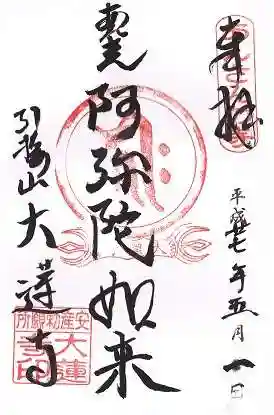 奉拝
平成廿七年五月一日
阿弥陀如来
引接山大蓮寺
安産勅願所
大蓮寺印